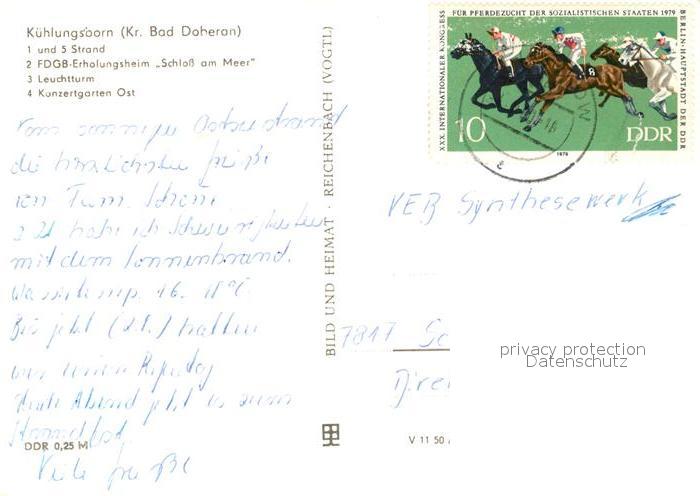 Kühlungsborn (Kr. Bad Doberan)
1 und 5 Strand
2 FDGB-Erholungsheim „Schloß am Meer"
3 Leuchtturm
4 Konzertgarten Ost
Vom sonnigen Ostseestrand
die herzlichsten Grüße
von Fam.
z. Zt. habe ich Schwierigkeiten
mit dem Sonnenbrand.
Wassertemp. 16
Bis jetzt hatten
wir einen Regentag
Heute Abend geht es zum
Strandfest.
Viele Grüße
DDR 0,25 M
BILD UND HEIMAT · REICHENBACH (VOGTL)
V 11 50
XXX. INTERNATIONALER KONGRESS
FÜR PFERDEZUCHT DER SOZIALISTISCHEN STAATEN 1979
BERLIN · HAUPTSTADT DER DDR
8
10
DDR
1979
VEB Synthesewerk
7817 Sc
Dire
privacy protection
Datenschutz